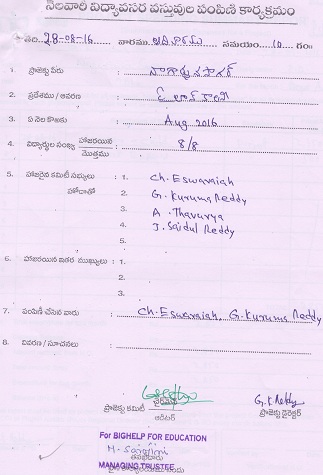 నెలవారీ విద్యావసర వస్తువుల పంపిణీ కార్యక్రమం
తేది. 28-08-16 వారము ఆదివారము సమయం 10 గం
1. ప్రాజెక్టు పేరు : నాగార్జున సాగర్
2. ప్రదేశము / ఆవరణ :
3. ఏ నెల కొఱకు : Aug 2016
4. విద్యార్థుల సంఖ్య హాజరయిన / మొత్తము : 8/8
5. హాజరైన కమిటీ సభ్యులు : 1. Ch. Eswaraiah
హోదాతో 2. G. Kuruma Reddy
3. A. Thavurya
4. J. Saidul Reddy
5.
6. హాజరయిన ఇతర ముఖ్యులు : 1.
2.
3.
7. పంపిణీ చేసిన వారు : Ch. Eswaraiah, G. Kuruma Reddy
8. వివరణ / సూచనలు :
ప్రాజెక్టు కమిటీ చైర్మన్
ఆడిటర్
G. K Reddy
ప్రాజెక్టు డైరెక్టర్
For BIGHELP FOR EDUCATION
M. Sarojini
MANAGING TRUSTEE